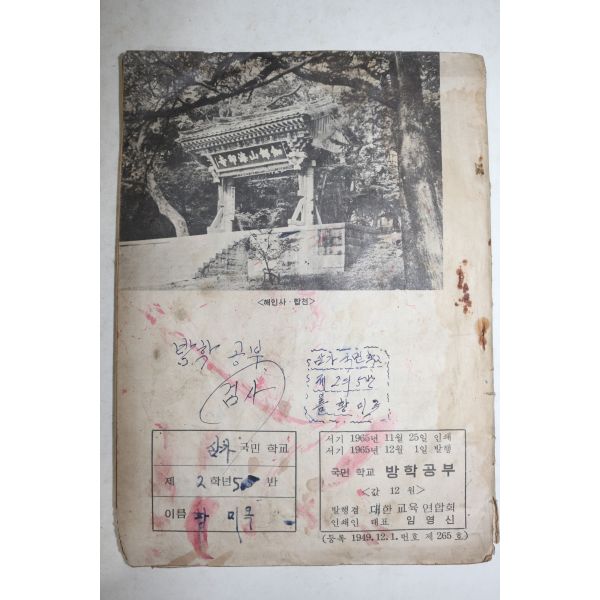 <해인사·합천>
방학 공부
검사
국민 학교
제 2 학년 5 반
이름
서기 1965년 11월 25일 인쇄
서기 1965년 12월 1일 발행
국민 학교 방학공부
<값 12 원>
발행겸 대한 교육 연합회
인쇄인 대표 임영신
(등록 1949.12.1. 번호 제 265 호)